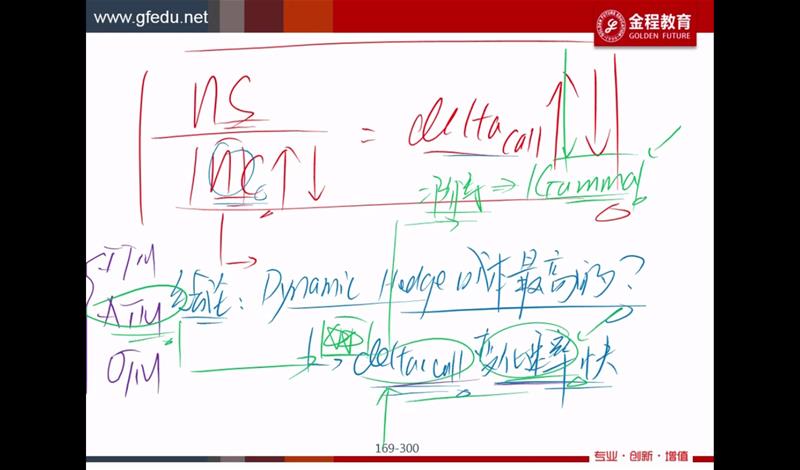 www.gfedu.net
金程教育
GOLDEN FUTURE
nS
nc
= delta call
二阶导 => Gamma
ITM
ATM
OTM
结论: Dynamic Hedge 成本最高的?
delta call 变化速率快
169-300
专业·创新·增值